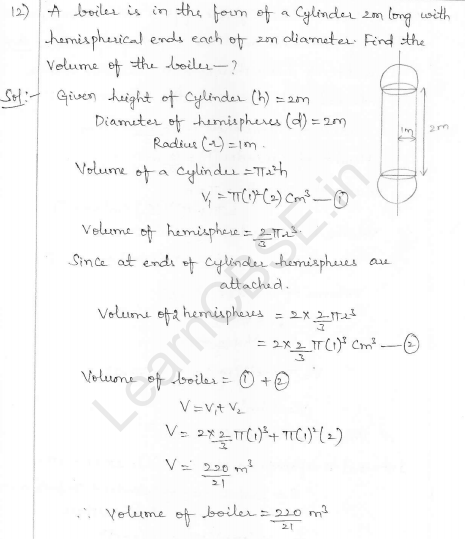 12) A boiler is in the form of a Cylinder 2m long with
hemispherical ends each of 2m diameter. Find the
Volume of the boiler—?
Sol:- Given height of Cylinder (h) = 2m
Diameter of hemispheres (d) = 2m
Radius (r) = 1m.
1m 2m
Volume of a Cylinder = πr²h
V₁ = π(1)²(2) Cm³ — ①
Volume of hemisphere = 2/3 πr³.
Since at ends of Cylinder hemispheres are
attached.
Volume of 2 hemispheres = 2x 2/3 πr³
= 2x 2/3 π(1)³ Cm³ — ②
Volume of boiler = ① + ②
V = V₁ + V₂
V = 2x 2/3 π(1)³ + π(1)²(2)
V = 220/21 m³
∴ Volume of boiler = 220/21 m³
LearnCBSE.in